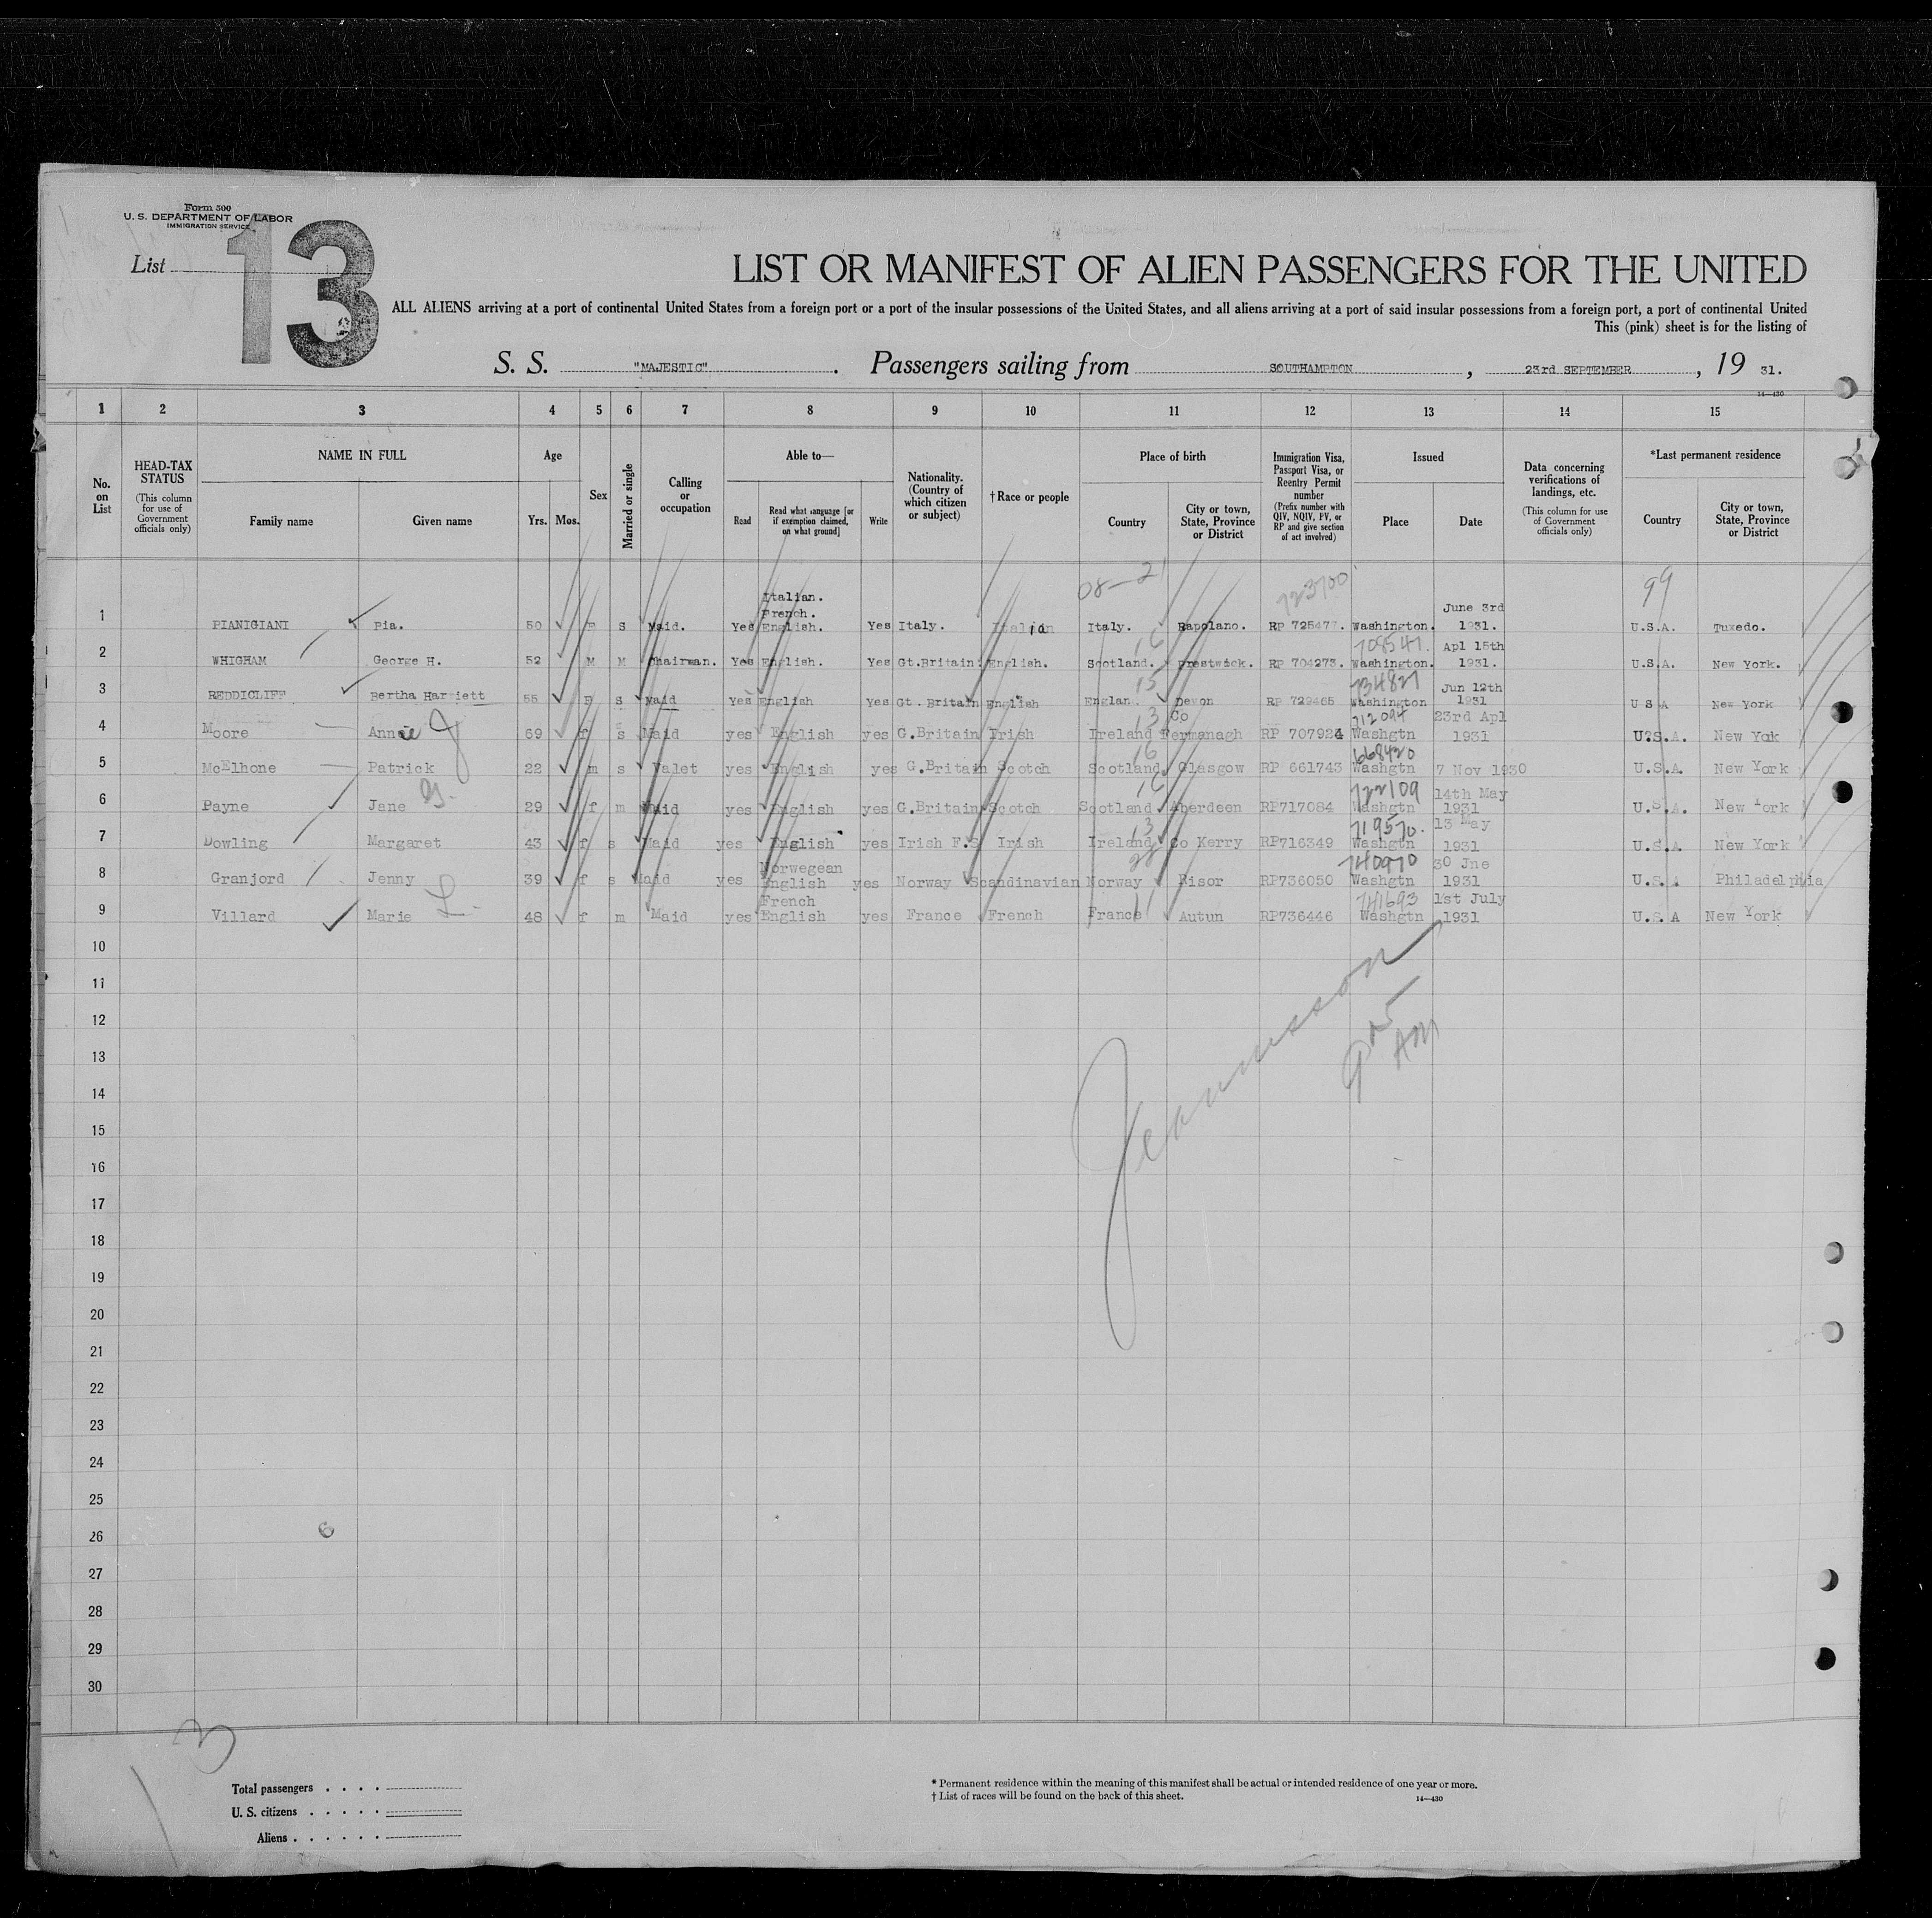 Form 500
U. S. DEPARTMENT OF LABOR
IMMIGRATION SERVICE
List
13
LIST OR MANIFEST OF ALIEN PASSENGERS FOR THE UNITED
ALL ALIENS arriving at a port of continental United States from a foreign port or a port of the insular possessions of the United States, and all aliens arriving at a port of said insular possessions from a foreign port, a port of continental United
This (pink) sheet is for the listing of
S. S. "MAJESTIC". Passengers sailing from SOUTHAMPTON, 23rd SEPTEMBER, 19 31.
14—430
1 2 3 4 5 6 7 8 9 10 11 12 13 14 15
No. on List
HEAD-TAX STATUS (This column for use of Government officials only)
NAME IN FULL
Family name Given name
Age
Yrs. Mos.
Sex
Married or single
Calling or occupation
Able to—
Read Read what language [or if exemption claimed, on what ground] Write
Nationality. (Country of which citizen or subject)
†Race or people
Place of birth
Country City or town, State, Province or District
Immigration Visa, Passport Visa, or Reentry Permit number (Prefix number with QIV, NQIV, PV, or RP and give section of act involved)
Issued
Place Date
Data concerning verifications of landings, etc. (This column for use of Government officials only)
*Last permanent residence
Country City or town, State, Province or District
08—21 723700 99
1 PIANIGIANI Pia. 50 F S Maid. Yes Italian. French. English. Yes Italy. Italian Italy. Rapolano. RP 725477. Washington. June 3rd 1931. U.S.A. Tuxedo.
16 708547.
2 WHIGHAM George H. 52 M M Chairman. Yes English. Yes Gt.Britain English. Scotland. Prestwick. RP 704273. Washington. Apl 15th 1931. U.S.A. New York.
15 734827
3 REDDICLIFF Bertha Harriett 55 F S Maid Yes English Yes Gt. Britain English England Devon RP 729465 Washington Jun 12th 1931 U S A New York
13 712094
4 Moore Annie J 69 f s Maid yes English yes G.Britain Irish Ireland Co Fermanagh RP 707924 Washgtn 23rd Apl 1931 U.S.A. New Yok
16 668420
5 McElhone Patrick 22 m s Valet yes English yes G.Britain Scotch Scotland Glasgow RP 661743 Washgtn 7 Nov 1930 U.S.A. New York
16 722109
6 Payne Jane G. 29 f m Maid yes English yes G.Britain Scotch Scotland Aberdeen RP717084 Washgtn 14th May 1931 U.S.A. New York
13 719570.
7 Dowling Margaret 43 f s Maid yes English yes Irish F.S Irish Ireland Co Kerry RP716349 Washgtn 13 May 1931 U.S.A New York
22 740970
8 Granjord Jenny 39 f s Maid yes Norwegean English yes Norway Scandinavian Norway Risor RP736050 Washgtn 30 Jne 1931 U.S.A Philadelphia
11 741693
9 Villard Marie L. 48 f m Maid yes French English yes France French France Autun RP736446 Washgtn 1st July 1931 U.S.A New York
10
11
12
13
14
15
16
17
18
19
20
21
22
23
24
25
26
27
28
29
30
3
Total passengers . . . .
U. S. citizens . . . . .
Aliens . . . . . .
* Permanent residence within the meaning of this manifest shall be actual or intended residence of one year or more.
† List of races will be found on the back of this sheet.
14—430